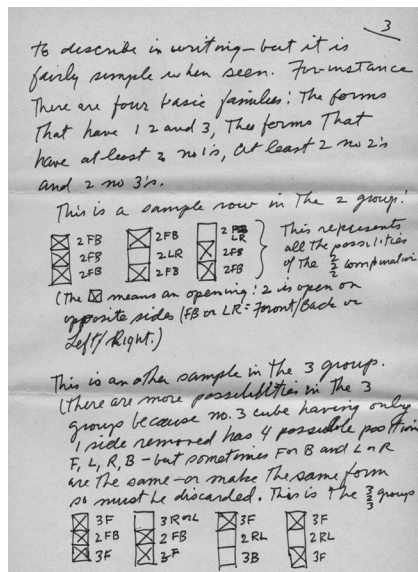 3
to describe in writing - but it is
fairly simple when seen. For instance
There are four basic families: The forms
that have 1 2 and 3, The forms that
have at least 2 no 1's, at least 2 no 2's
and 2 no 3's.
This is a sample row in the 2 group:
2FB 2FB 2 LR
2FB 2LR 2FB
2FB 2FB 2FB
This represents
all the possibilities
of the 2/2/2 combination
(The ☒ means an opening: 2 is open on
opposite sides (FB or LR = Front/Back or
Left/Right.)
This is another sample in the 3 group.
(There are more possibilities in the 3
group because no. 3 cube having only
1 side removed has 4 possible positions
F, L, R, B - but sometimes F or B and L or R
are the same - or make the same form
so must be discarded. This is the 3/2/3 group
3F 3R or L 3F 3F
2FB 2FB 2RL 2RL
3F 3F 3B 3F